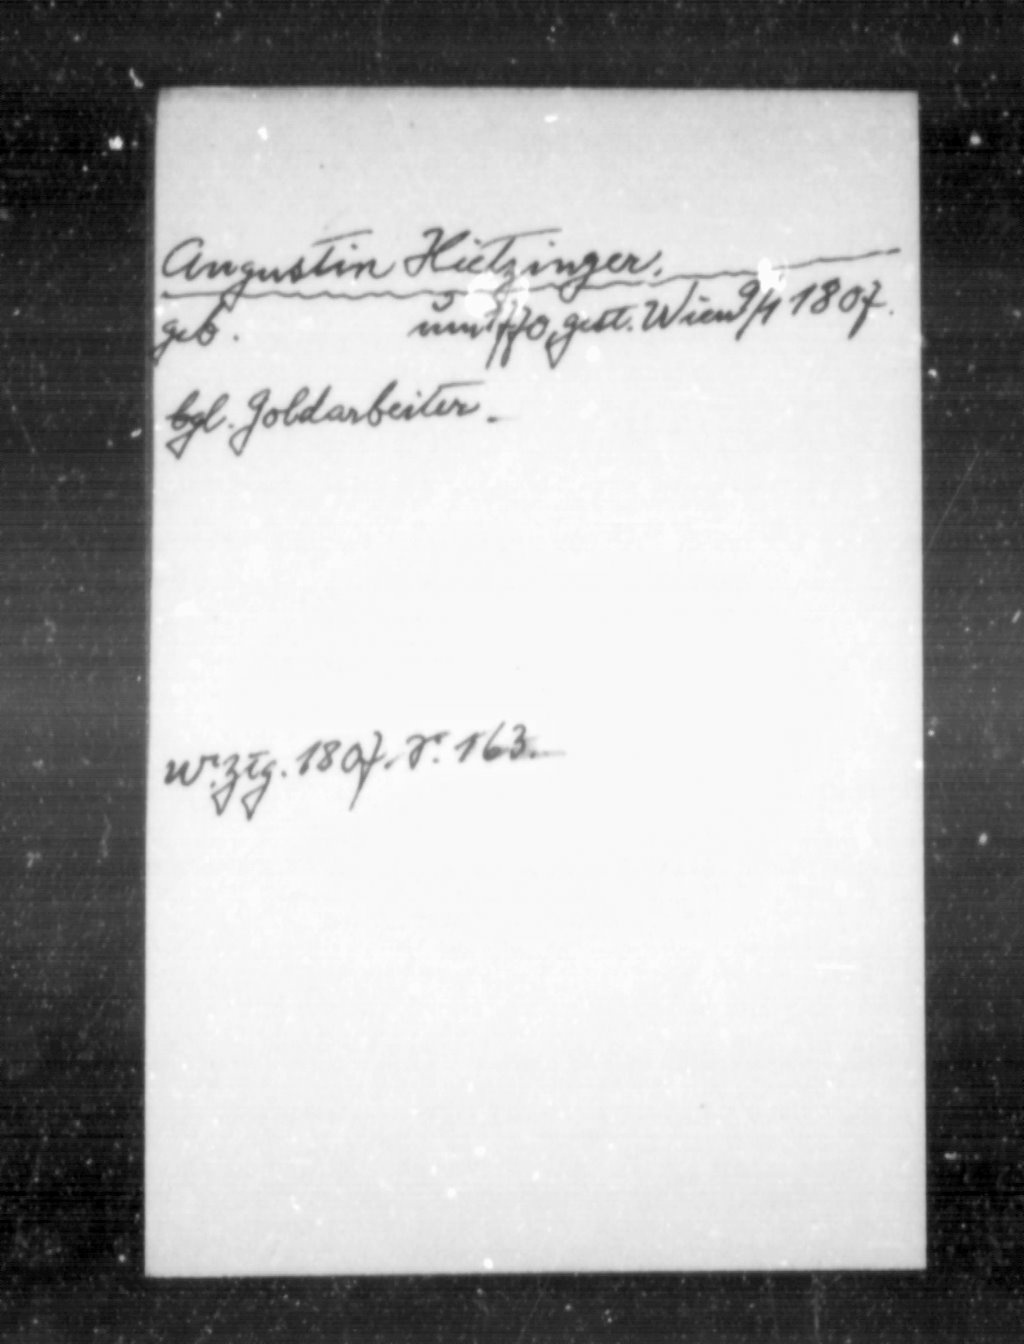 Augustin Hietzinger.
geb. um 1770, gest. Wien 9/1 1807.
bgl. Goldarbeiter.
Wr. Ztg. 1807. S. 163.